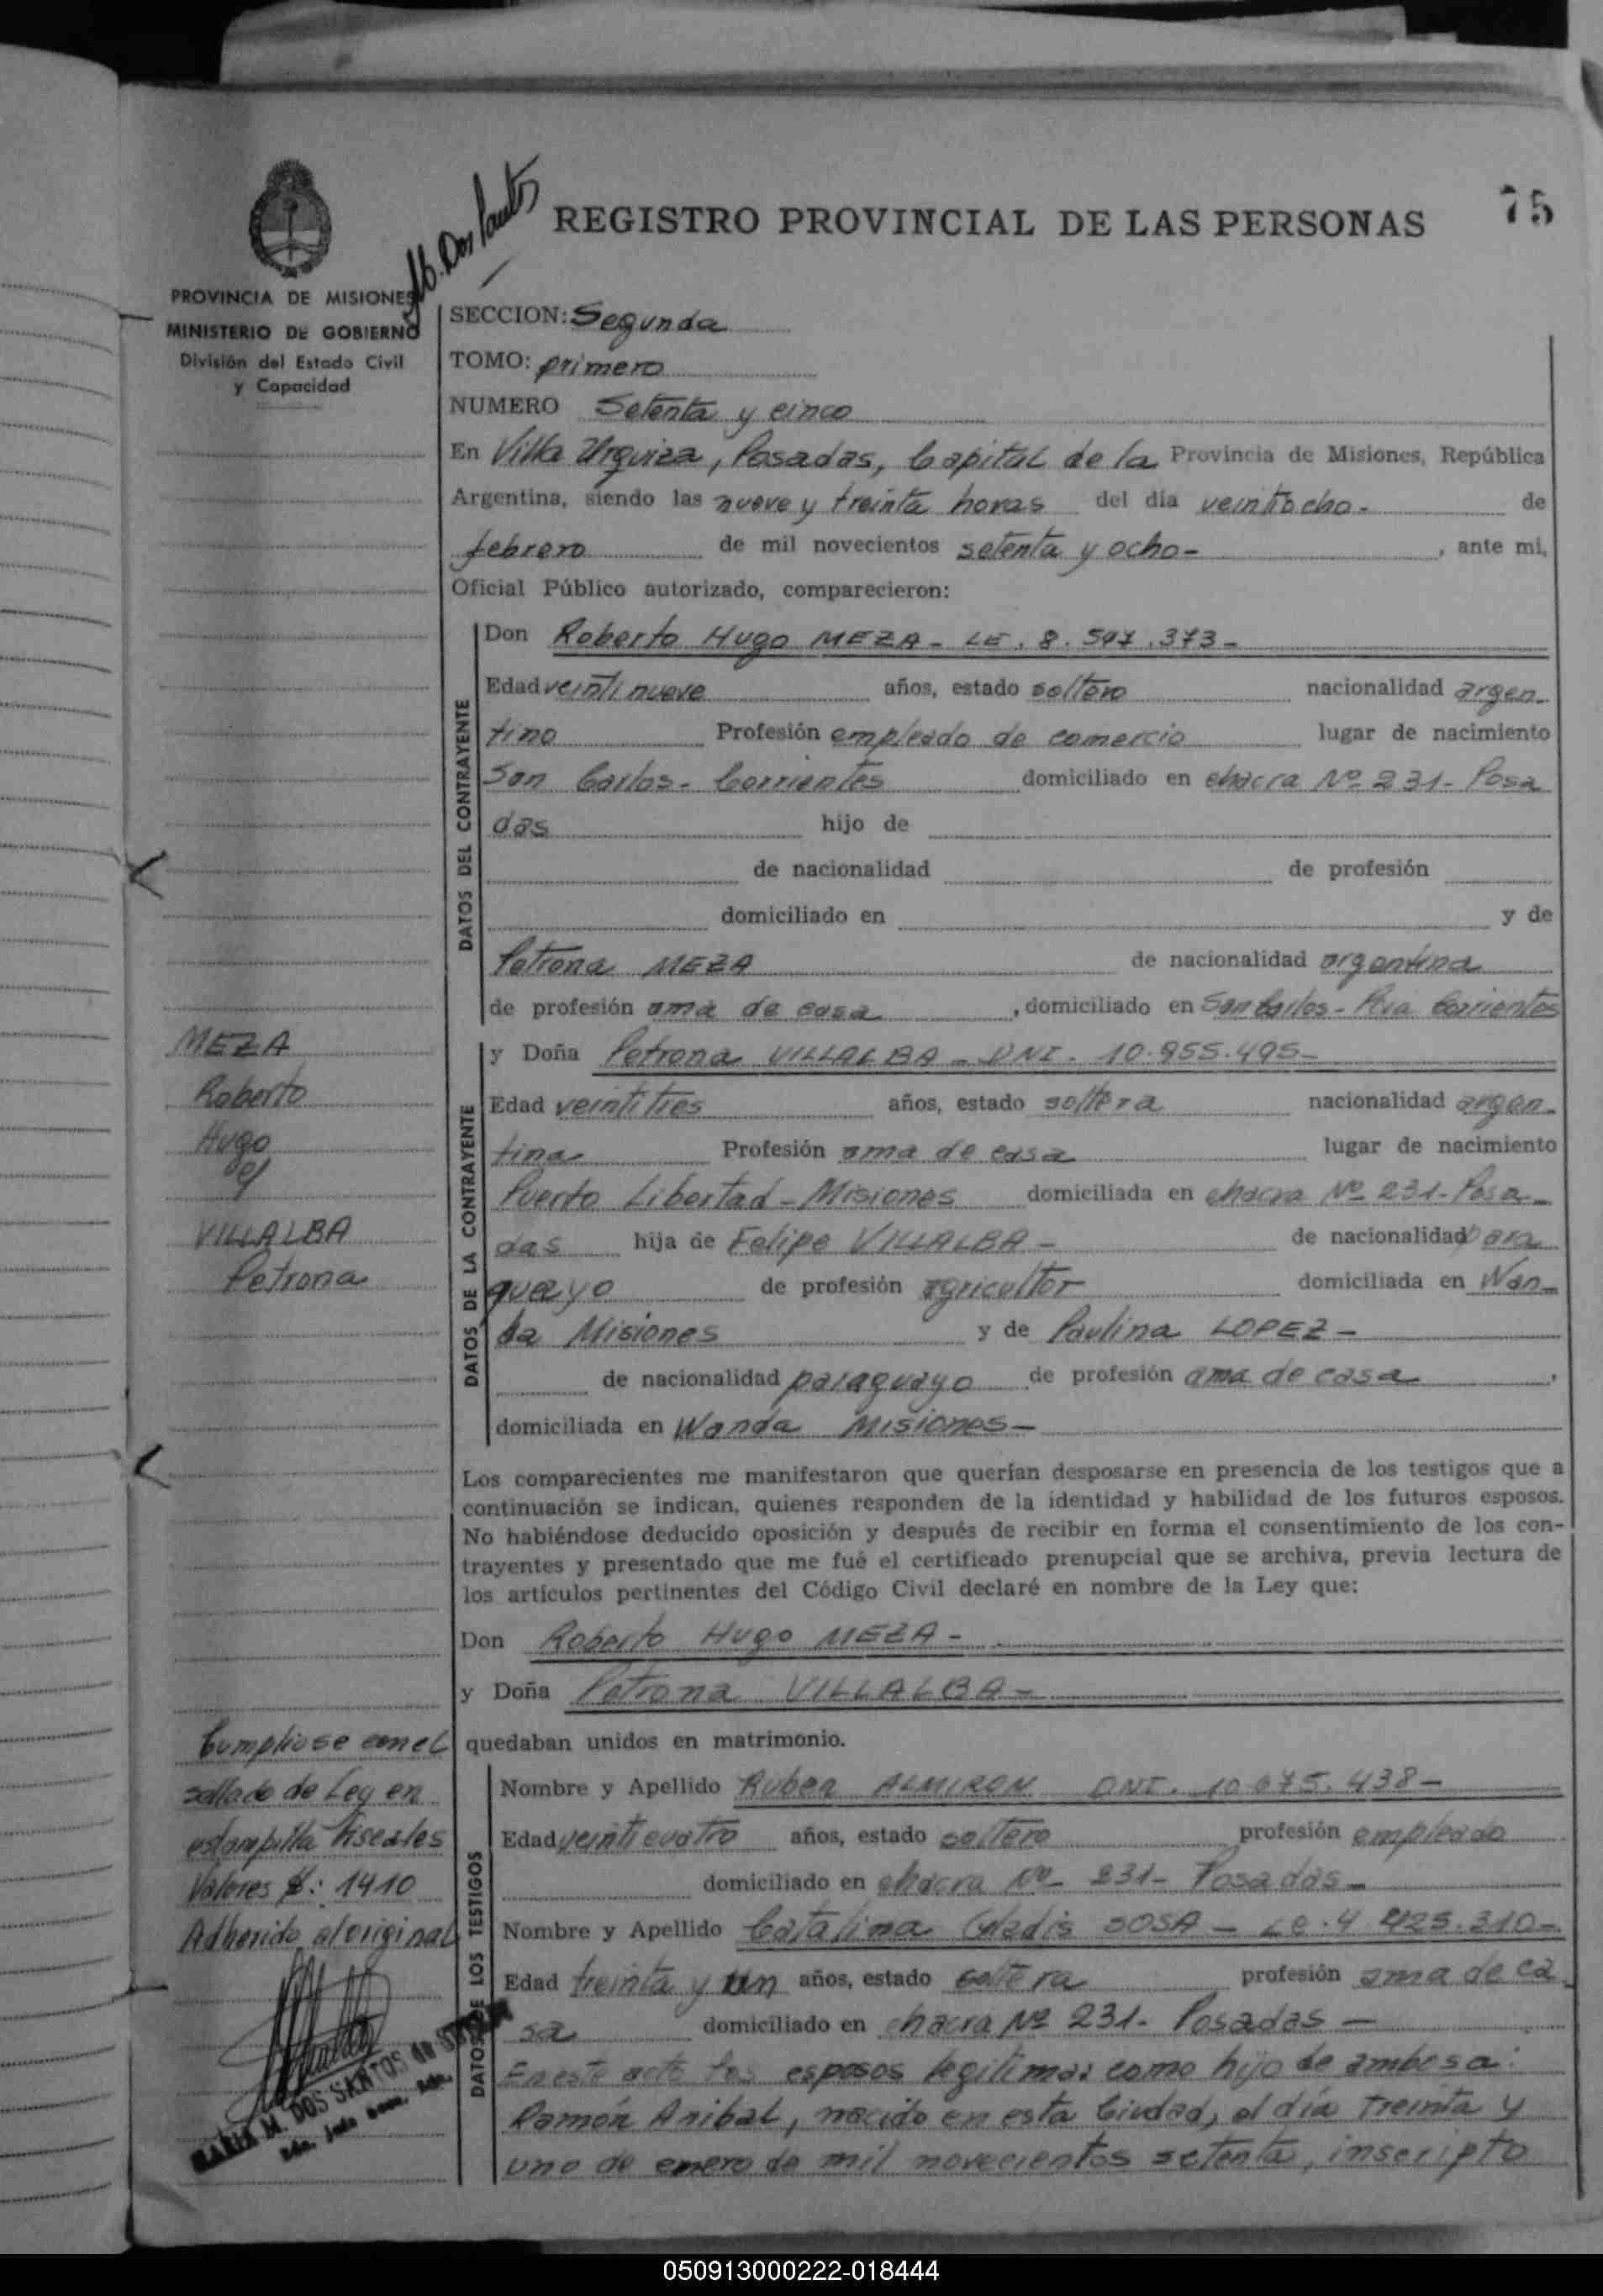 75
REGISTRO PROVINCIAL DE LAS PERSONAS
PROVINCIA DE MISIONES
MINISTERIO DE GOBIERNO
División del Estado Civil
y Capacidad
SECCION: Segunda
TOMO: primero
NUMERO Setenta y cinco
En Villa Urquiza, Posadas, Capital de la Provincia de Misiones, República
Argentina, siendo las nueve y treinta horas del día veintiocho.
de
febrero de mil novecientos setenta y ocho- , ante mi,
Oficial Público autorizado, comparecieron:
DATOS DEL CONTRAYENTE
Don Roberto Hugo MEZA - LE. 8.547.373-
Edad veintinueve años, estado soltero nacionalidad argen-
tino Profesión empleado de comercio lugar de nacimiento
San Carlos- Corrientes domiciliado en chacra Nº 231- Posa
das hijo de
de nacionalidad de profesión
domiciliado en y de
Petrona MEZA de nacionalidad argentina
de profesión ama de casa , domiciliado en San Carlos- Pcia Corrientes
DATOS DE LA CONTRAYENTE
y Doña Petrona VILLALBA - DNI. 10.855.495-
Edad veintitres años, estado soltera nacionalidad argen-
tina Profesión ama de casa lugar de nacimiento
Puerto Libertad - Misiones domiciliada en chacra Nº 231- Posa-
das hija de Felipe VILLALBA - de nacionalidad para
guayo de profesión agricultor domiciliada en Wan-
da Misiones y de Paulina LOPEZ -
de nacionalidad paraguayo de profesión ama de casa ,
domiciliada en Wanda Misiones-
MEZA
Roberto
Hugo
VILLALBA
Petrona
Los comparecientes me manifestaron que querían desposarse en presencia de los testigos que a
continuación se indican, quienes responden de la identidad y habilidad de los futuros esposos.
No habiéndose deducido oposición y después de recibir en forma el consentimiento de los con-
trayentes y presentado que me fué el certificado prenupcial que se archiva, previa lectura de
los artículos pertinentes del Código Civil declaré en nombre de la Ley que:
Don Roberto Hugo MEZA -
y Doña Petrona VILLALBA -
quedaban unidos en matrimonio.
Cumpliose con el
sellado de Ley en
estampilla fiscales
Valores $: 1410
Adherido al original
MARIA M. DOS SANTOS de
DATOS DE LOS TESTIGOS
Nombre y Apellido Ruben ALMIRON DNI. 10.675.438-
Edad veinticuatro años, estado soltero profesión empleado
domiciliado en chacra Nº 231- Posadas-
Nombre y Apellido Catalina Gladis SOSA - LC. 4.425.310-
Edad treinta y un años, estado soltera profesión ama de ca
sa domiciliado en chacra Nº 231- Posadas -
En este acto los esposos legitiman como hijo de ambos a:
Ramón Anibal, nacido en esta Ciudad, el día treinta y
uno de enero de mil novecientos setenta, inscripto
050913000222-018444